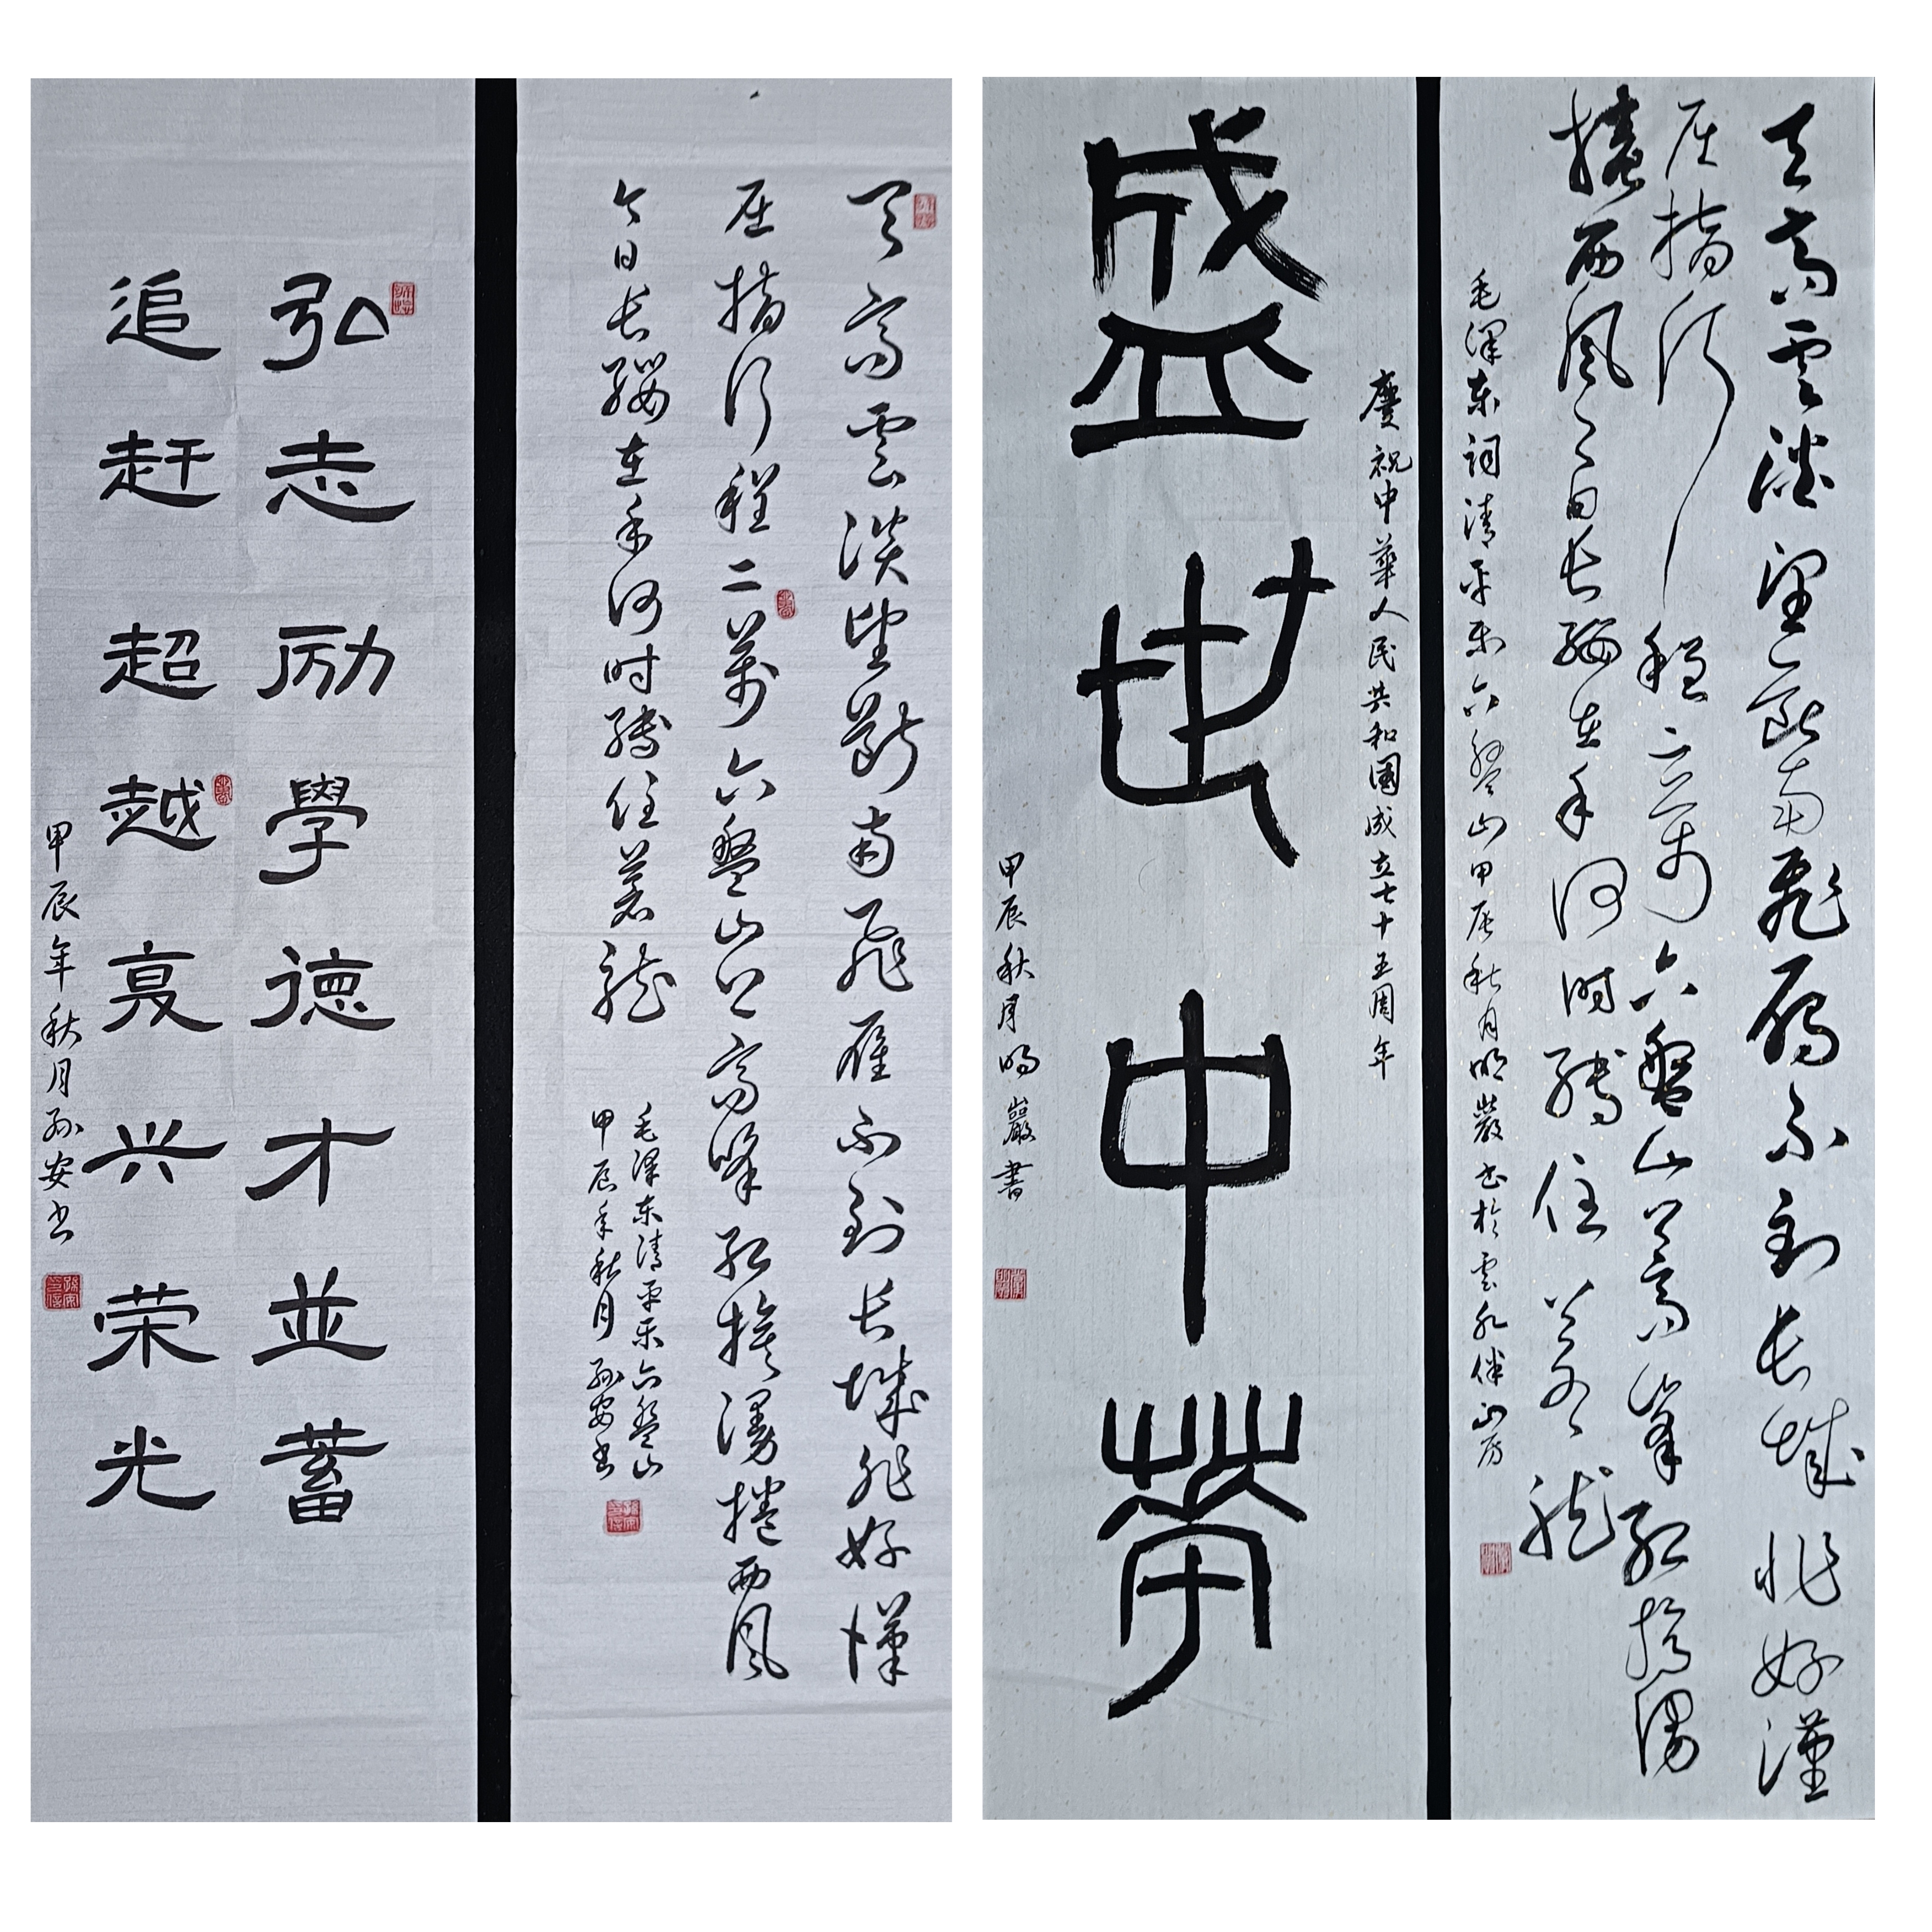 天高雲淡望斷南飛雁不到长城非好漢
屈指行程二萬六盤山上高峰红旗漫捲西風
今日长缨在手何时缚住苍龙
毛泽东清平乐六盘山
甲辰年秋月孙安书
弘志励學德才並蓄
追赶超越复兴荣光
甲辰年秋月孙安书
天高雲淡望斷南飛雁不到长城非好漢
屈指行程二萬六盤山上高峯红旗漫
捲西風今日长缨在手何时缚住苍龙
毛泽东词清平乐六盘山甲辰秋月明巖书於雲水伴山房
慶祝中華人民共和國成立七十五周年
盛世中華
甲辰秋月明巖書